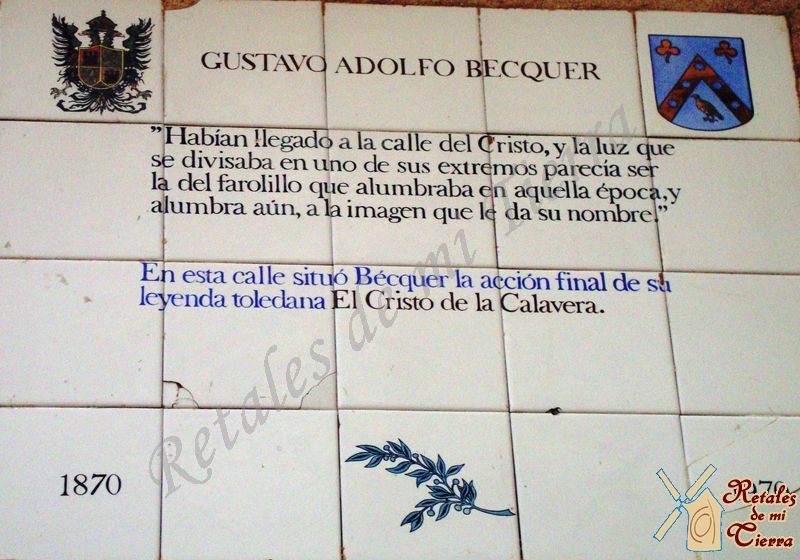 GUSTAVO ADOLFO BECQUER
"Habían llegado a la calle del Cristo, y la luz que
se divisaba en uno de sus extremos parecía ser
la del farolillo que alumbraba en aquella época, y
alumbra aún, a la imagen que le da su nombre."
En esta calle situó Bécquer la acción final de su
leyenda toledana El Cristo de la Calavera.
1870
Retales de mi Tierra
Retales
de mi
Tierra